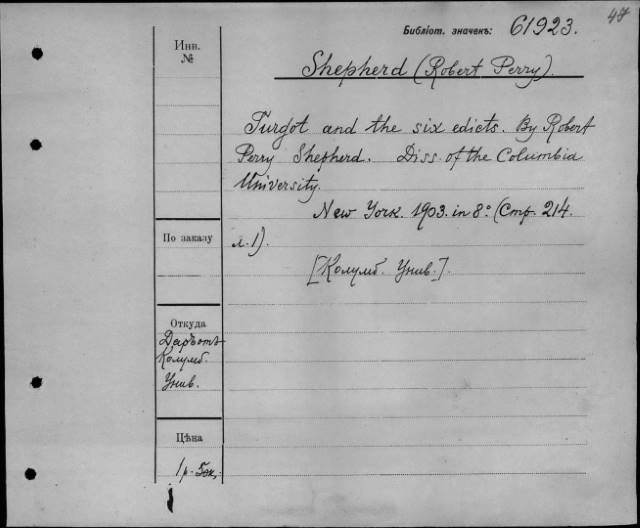 48
Библіот. значекъ: 61923.
Инв.
№
Shepherd (Robert Perry).
Turgot and the six edicts. By Robert
Perry Shepherd. Diss. of the Columbia
University.
New York. 1903. in 8º (Стр. 214.
л. 1).
[Колумб. Унив.].
По заказу
Откуда
Даръ отъ
Колумб.
Унив.
Цѣна
1 р.